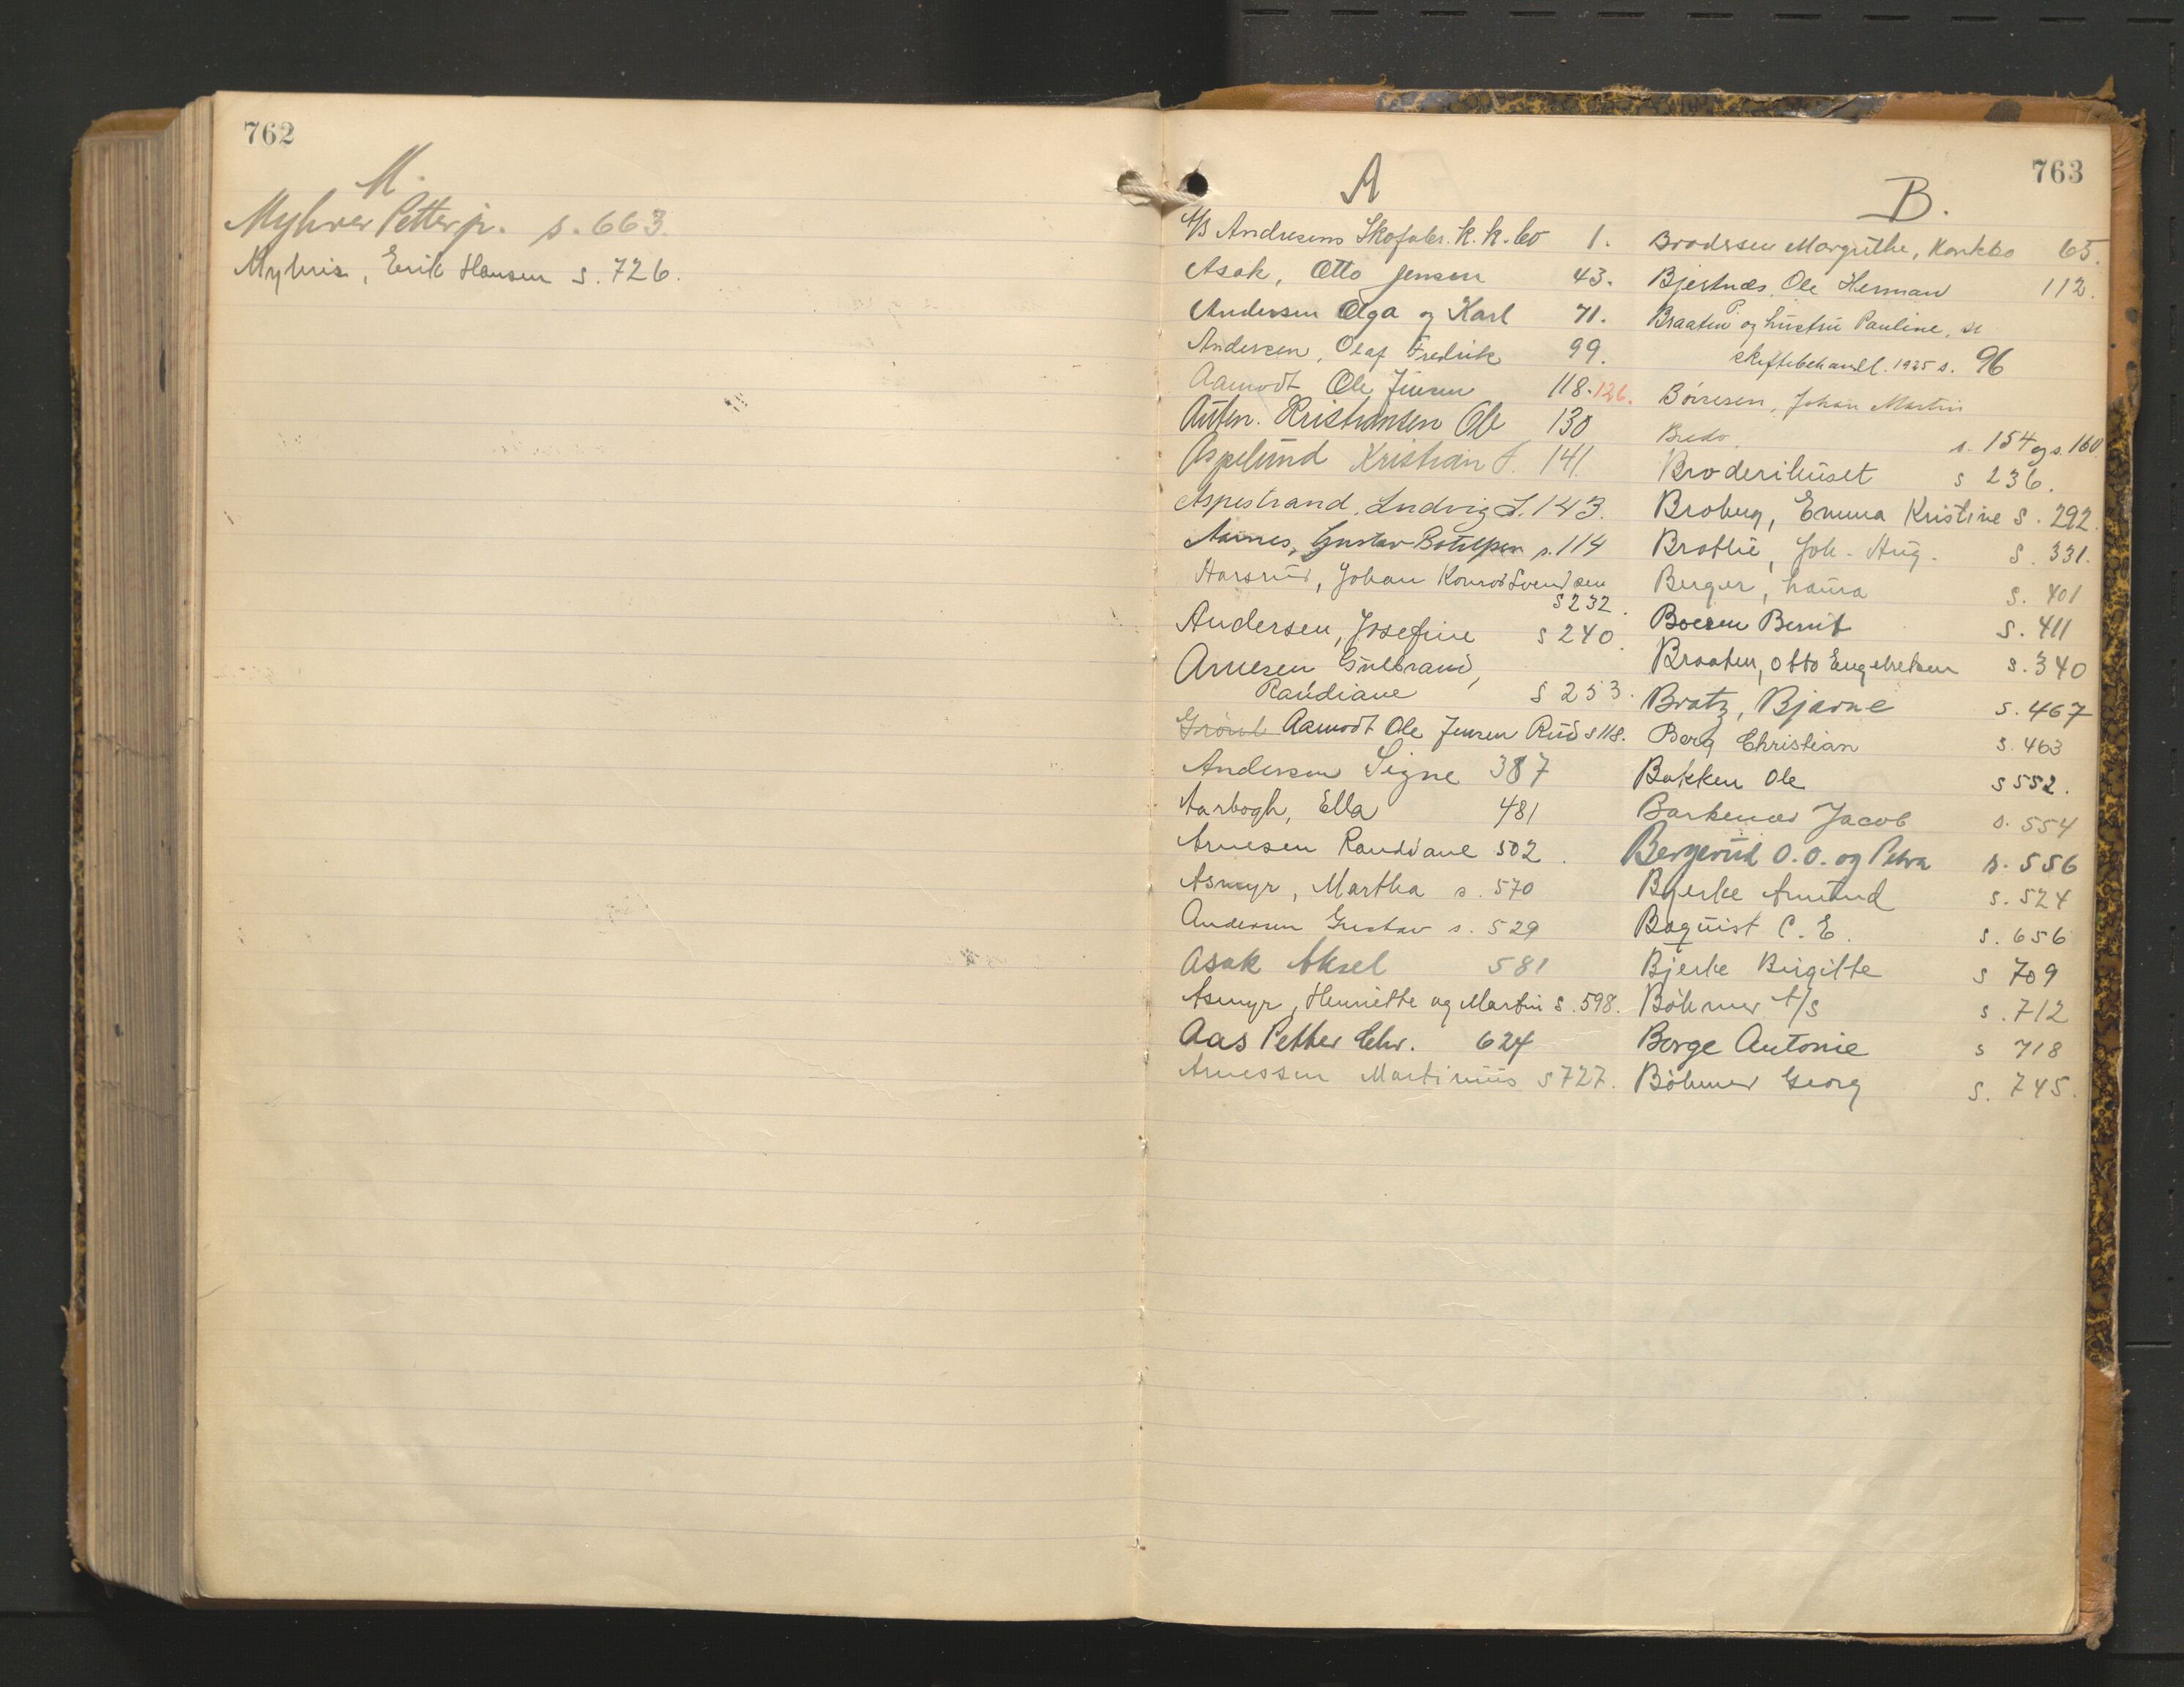 762
M.
Myhrer Petter jr. s. 663.
Myhrie, Erik Hansen s. 726.
763
A
A/S Andresens Skofabr. k.k. bo 1.
Asak, Otto Jensen 43.
Andersen Olga og Karl 71.
Andersen, Olaf Fredrik 99.
Aamodt Ole Jensen 118. 126.
Auten. Kristiansen Ole 130
Aspelund Kristian F. 141.
Aspestrand, Ludvig L. 143.
Aarnes, Gustav s. 114
Aarsrud, Johan Konrad Svendsen
s 232.
Andersen, Josefine s 240.
Arnesen Gulbrand,
Randiane s 253.
Aamodt Ole Jensen Rud s 118.
Andersen Signe 387
Aarbogh, Ella 481
Arnesen Randiane 502.
Asmyr, Martha s. 570
Andersen Gustav s. 529
Asak Aksel 581
Asmyr, Henriette og Martin s. 598.
Aas Petter Chr. 624
Arnessen Martinius s 727.
B.
Brodersen Margrethe, Konkbo 65.
Bjertnæs, Ole Herman 112.
Braaten P og hustru Pauline, se
skiftebehandl. 1925 s. 96
Børresen, Johan Martin
Bredo. s. 154 og s. 160
Broderihuset s 236.
Broberg, Emma Kristine s. 292.
Brotlie, Joh. Aug. s. 331.
Berger, Laura s. 401
Boesen Bernt s. 411
Braaten, Otto Engebretsen s. 340
Bratz, Bjarne s. 467
Berg Christian s. 463
Bakken Ole s 552.
Barkenæs Jacob s. 554
Bergerud O.O. og Petra s. 556
Bjerke Amund s. 524
Boquist C. E. s. 656
Bjerke Birgitte s 709
Böhmer A/S s. 712
Borge Antonie s 718
Böhmer Georg s. 745.